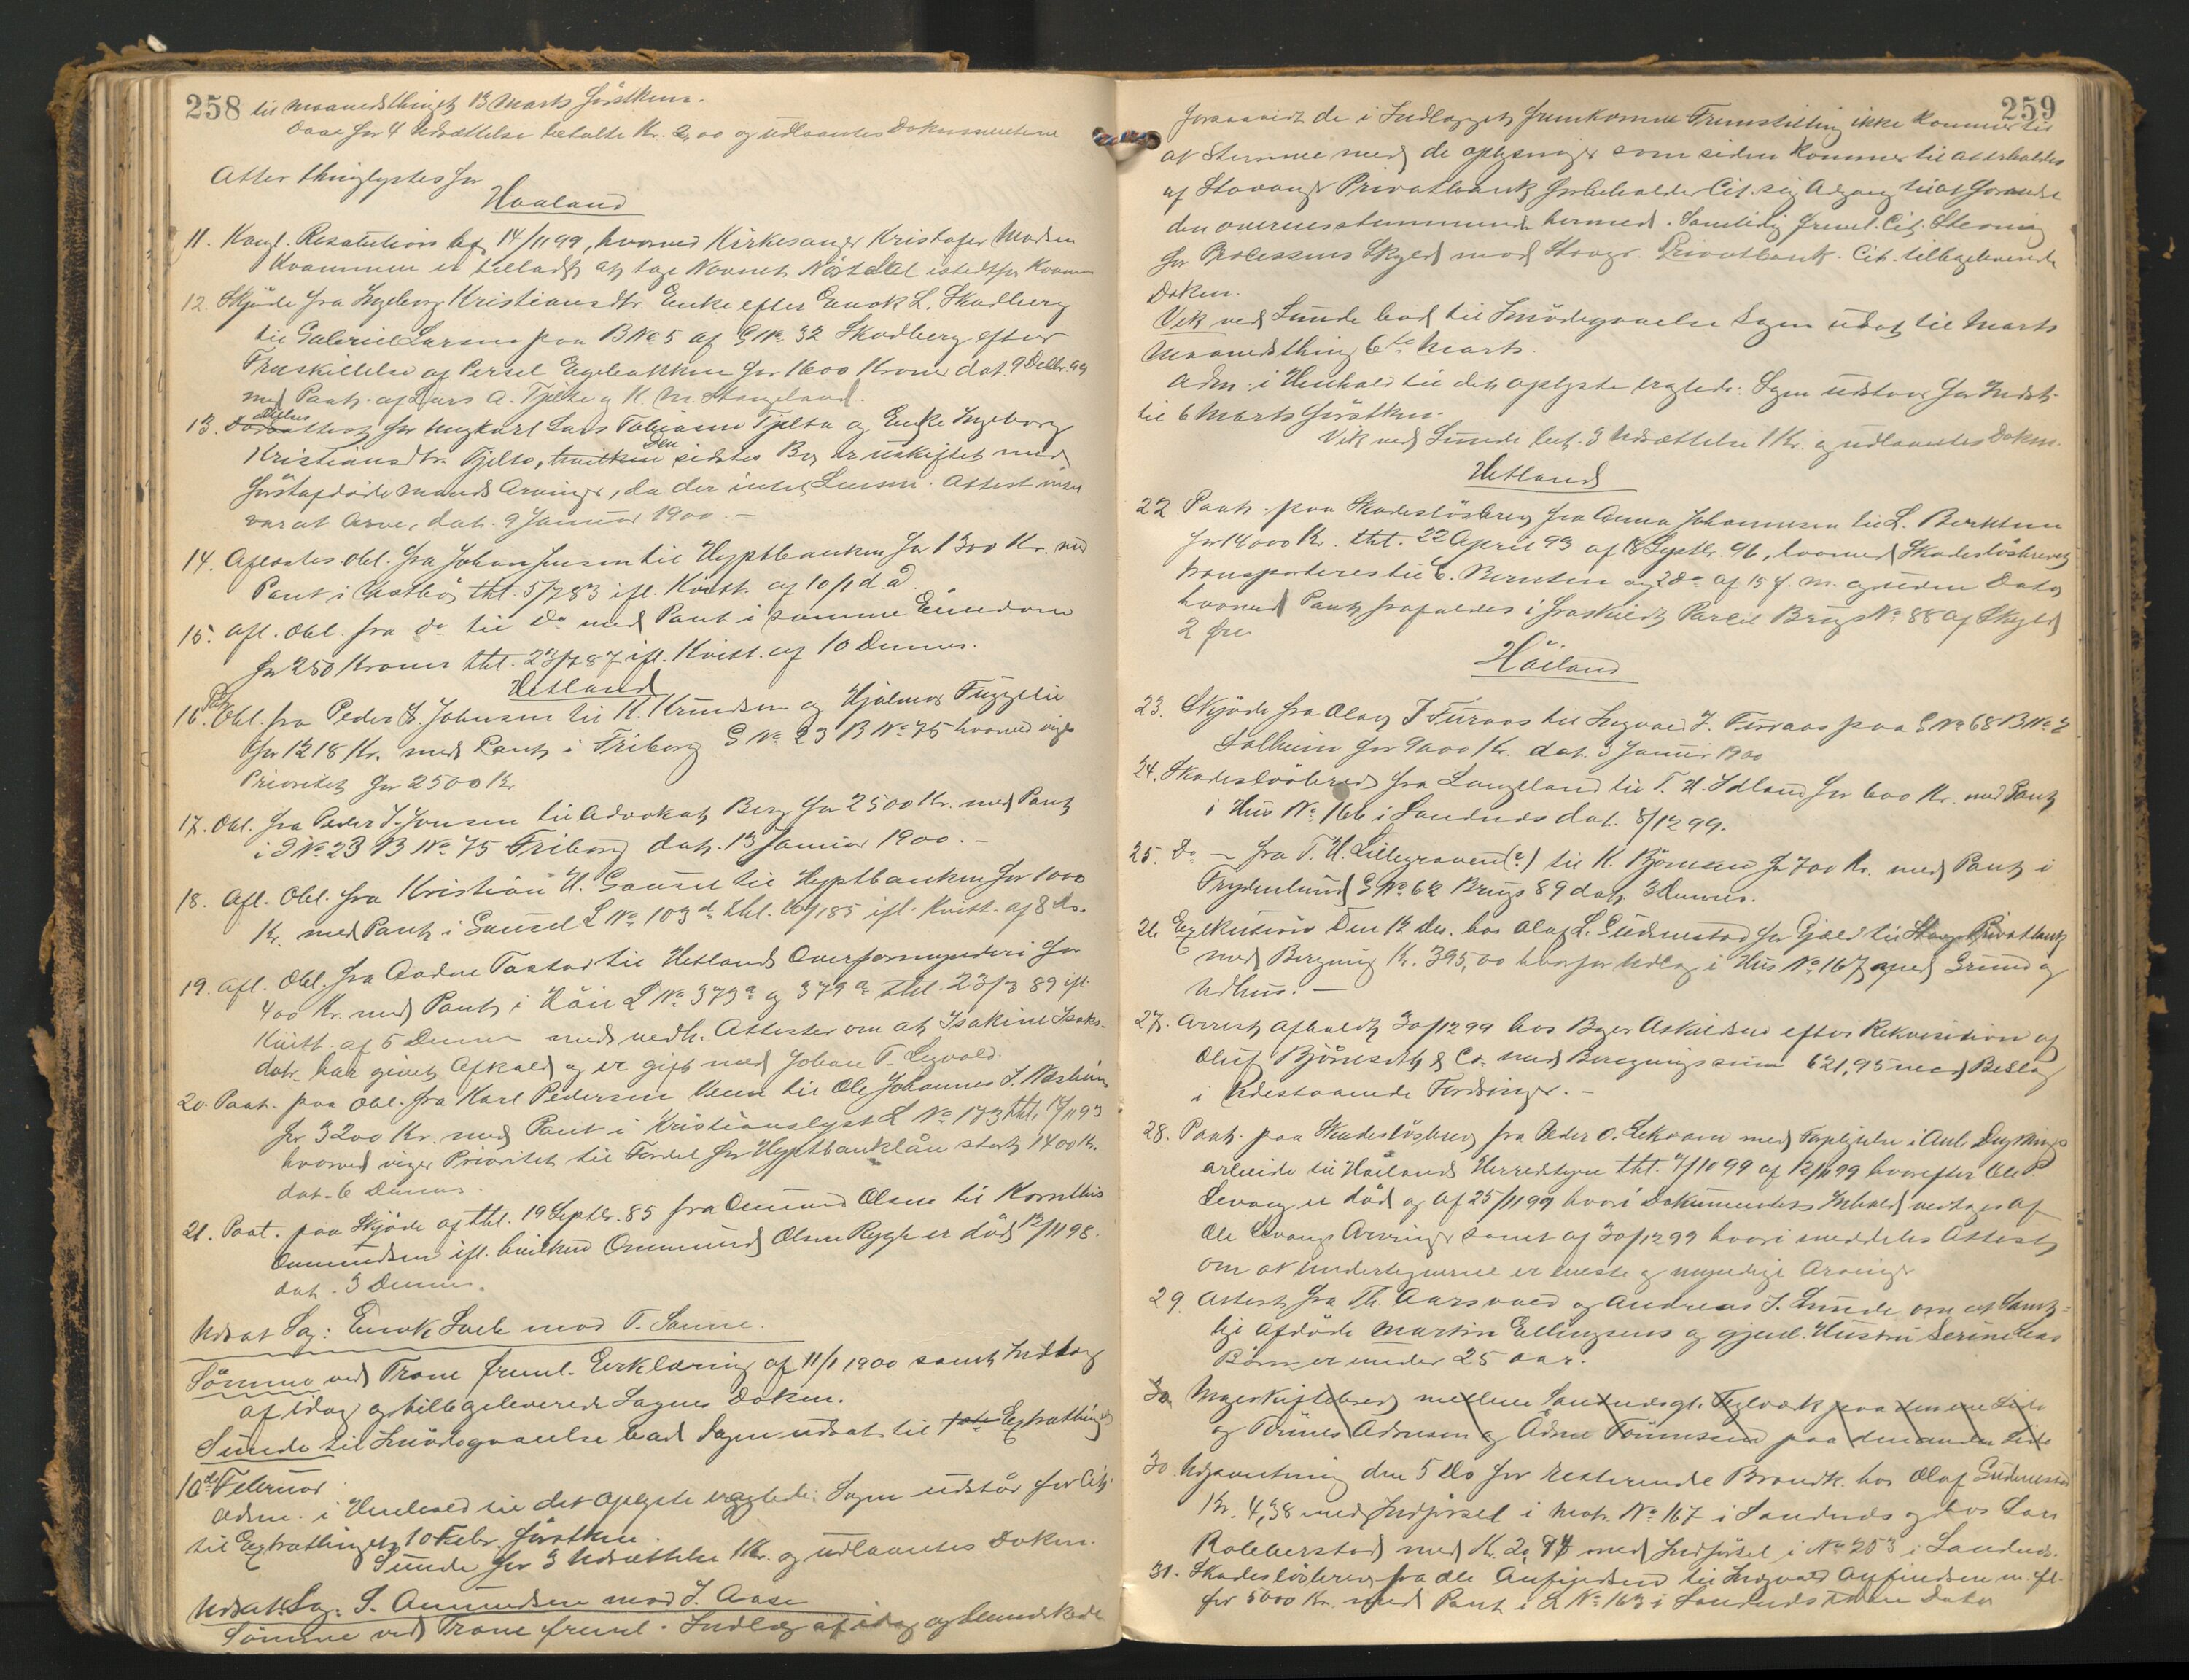 258 til Maanedsthinget 13 Marts førstkom.
Daae for 4 Udsættelse betalte Kr. 2,00 og udlaantes Dokumenterne
Atter thinglystes for
Haaland
11. Kongl. Resolution af 14/11 99, hvorved Kirkesanger Kristofer Madsen
Kvammen er tilladt at tage Navnet istedtfor Kvammen
12. Skjøde fra Ingeborg Kristiansdtr. Enke efter Enok L. Skadberg
til Gabriel Larsen paa B No 5 af G No 32 Skadberg efter
Fraskillelse af Parsel for 1600 Kroner dat. 9 Decbr. 99
med Paat. af Lars A. Tjelta og K. M. Stangeland.
13. for Ungkarl Lars Tobiasen Tjelta og Enke Ingeborg
Kristiansdtr. Tjelta, hvilken den sidstes Bo er uskiftet med
førstafdøde Mands Arvinger, da der intet Attest intet
var at arve, dat. 9 Januar 1900. -
14. Aflæstes Obl. fra Johan Jensen til Hyptbanken for 1300 Kr. med
Pant i thl. 5/7 83 ifl. Kvitt. af 10/1 d.å.
15. Afl. Obl. fra do til Do med Pant i samme Eiendom
for 250 Kroner thl. 23/7 87 ifl. Kvitt. af 10 Dennes.
Hetland
16. Obl. fra Peder J. Johnsen til K. Knudsen og Hjalmar Fuggelie
for 1218 Kr. med Pant i Friborg G No 23 B No 75 hvorved viges
Prioritet for 2500 Kr.
17. Obl. fra Peder J. Jonsen til Advokat Berg for 2500 Kr. med Pant
i G No 23 B No 75 Friborg dat. 13 Januar 1900. -
18. Afl. Obl. fra Kristian H. Gausel til Hyptbanken for 1000
Kr. med Pant i Gausel L No 103 d thl. 85 ifl. Kvitt. af 8 ds.
19. Afl. Obl. fra Aadne Tastad til Hetlands Overformynderi for
400 Kr. med Pant i L No 373 a og 379 a thl. 23/3 89 ifl.
Kvitt. af 5 Dennes med vedh. Attester om at Isakine Isaks-
datr. har givet Afkald og er gift med Johan T.
20. Paat. paa Obl. fra Karl Pedersen til Ole Johannes J.
for 3200 Kr. med Pant i Kristianslyst L No 173 thl. 93
hvorved viger Prioritet til Fordel for Hyptbanklån stort 1400 Kr.
dat. 6 Dennes.
21. Paat. paa Skjøde af thl. 19 Septbr. 85 fra Ommund Olsen til Kornelius
Ommundsen ifl. hvilken Ommund Olsen Rygh er død 12/11 98.
dat. 3 Dennes.
Udsat Sag: Enok mod T. Sanne.
Sømme ved Trane freml. Erklæring af 11/1 1900 samt Indlæg
af idag og tilbageleverede Sagens Dokm.
Sunde til Imødegaaelse bad Sagen udsat til Extrathinget
10de Februar.
Adm. i Henhold til det oplyste eragtede: Sagen udstår for Cit.
til Extrathinget 10 Febr. førstkom.
Sunde for 3 Udsættelse 1 Kr. og udlaantes Dokm.
Udsat Sag: S. Amundsen mod J. Aase
Sømme ved Trane freml. Indlæg af idag og bemærkede
259
forsaavidt de i Indlægget fremkomne Fremstilling ikke kommer til
at stemme med de oplysninger som siden kommer til at erholdes
af Stavanger Privatbank forbeholder Cit. sig Adgang til at forandre
den overensstemmende hermed. Samtidig freml. Cit. Stevning
for Processens Skyld mod Stavgr. Privatbank. Cit. tilbageleverede
Dokm.
Vik ved Sunde bad til Imødegaaelse Sagen udsat til Marts
Maanedsthing 6te Marts.
Adm. i Henhold til det oplyste eragtede: Sagen udstaar for Indst.
til 6 Marts førstkom.
Vik ved Sunde bet. 3 Udsættelse 1 Kr. og udlaantes Dokm.
Hetland
22. Paat. paa Skadesløsbrev fra Anna Johannesen til L. Berntsen
for 14000 Kr. thl. 22 April 93 af 18 Septbr. 96, hvorved Skadesløsbrevet
transporteres til C. Berntsen og 2do af 15 f. m. og uden Dato
hvorved Pant frafaldes i fraskilt Parcel Brugs No 88 af Skyld
2 Øre.
Håiland
23. Skjøde fra Olav J Furaas til Ingvald J. Furaas paa G No 68 B No 2
Solheim for 9000 Kr. dat. 3 Januar 1900
24. Skadesløsbrev fra Langeland til T. H. Idland for 600 Kr. med Pant
i Hus No 166 i Sandnes dat. 8/12 99.
25. Do - fra T. H. Lillegraven(?) til K. Bjørnsen for 700 Kr. med Pant i
Frydenlund G No 62 Brugs 89 dat. 3 Dennes.
26 Exekution Den 12 ds. hos Olaf L. Gudmestad for Gjæld til Stavgr. Privatbank
med Beregning Kr. 395,00 hvorfor Udlæg i Hus No 167 med Grund og
Udhus. -
27. Arrest afholdt 30/12 99 hos Bager Askildsen efter Rekvisition af
Oluf Bjørnseth & Co. med Beregningssum 621,95 med Beslag
i Udestaaende Fordringer. -
28. Paat. paa Skadesløsbrev fra Peder O. med Forpligtelse i Anl. Dugnings
arbeide til Håilands Herredstyre thl. 4/10 99 af 12/11 99 hvorefter Ole P.
er død og af 25/11 99 hvori Dokumentets Indhold vedtages af
Ole Arvinger samt af 30/12 99 hvori meddeles Attest
om at Undertegnerne er eneste og myndige Arvinger
29. Attest fra Th. Aarsvold og Andreas J. Lunde om at Samt-
lige afdøde Martin Ellingsens og gjenl. Hustru Serine
Børn er under 25 Aar.
30 Mageskiftebrev mellem Sandnesgt. Teglværk paa den ene Side
og Tønnes Adnesen og Adne Tønnesen paa den anden Side
30. Udpantning den 5 ds for resterende Brandk. hos Olaf Gudmestad
Kr. 4,38 med Indførsel i Matr. No 167 i Sandnes og hos Lars
med Kr. 2, med Indførsel i No 253 i Sandnes.
31. Skadesløsbrev fra Ole Anfindsen til Ingvald Anfindsen m. fl.
for 5000 Kr. med Pant i L No 163 i Sandnes uden Dato